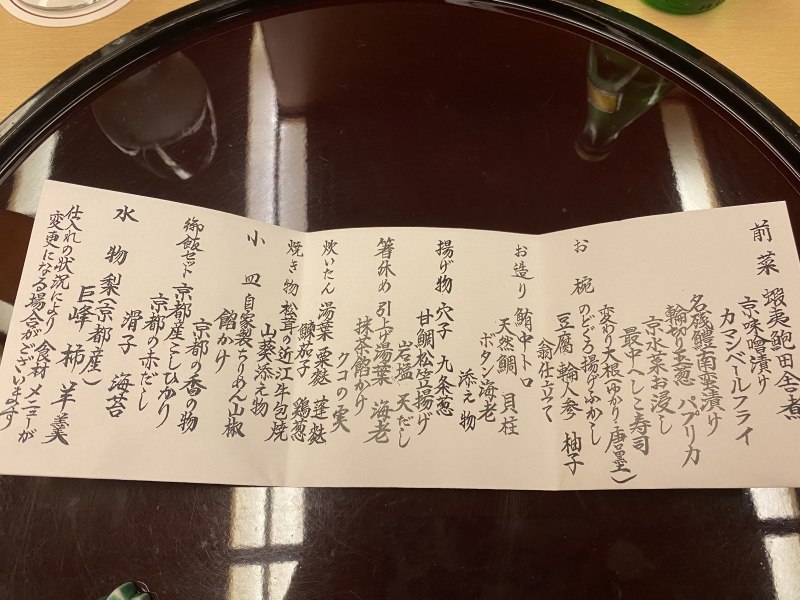 前菜 蝦夷鮑田舎煮
京味噌漬け
カマンベールフライ
名残鱧南蛮漬け
輪切り玉葱 パプリカ
京水菜お浸し
最中へしこ寿司
変わり大根(ゆかり・唐墨)
お椀 のどぐろ揚げふかし
豆腐 輪人参 柚子
翁仕立て
お造り 鮪中トロ
天然鯛 貝柱
ボタン海老
添え物
揚げ物 穴子 九条葱
甘鯛松笠揚げ
岩塩 天だし
箸休め 引上げ湯葉 海老
抹茶餡かけ
クコの実
炊いたん 湯葉 粟麩 蓬麩
鰊茄子 鶏葱
焼き物 松茸の近江牛包焼
山葵添え物
小皿 自家製ちりめん山椒
餡かけ
京都の香の物
御飯セット 京都産こしひかり
京都の赤だし
滑子 海苔
水物 梨(京都産)
巨峰 柿 羊羹
仕入れの状況により 食材 メニューが
変更になる場合がございます